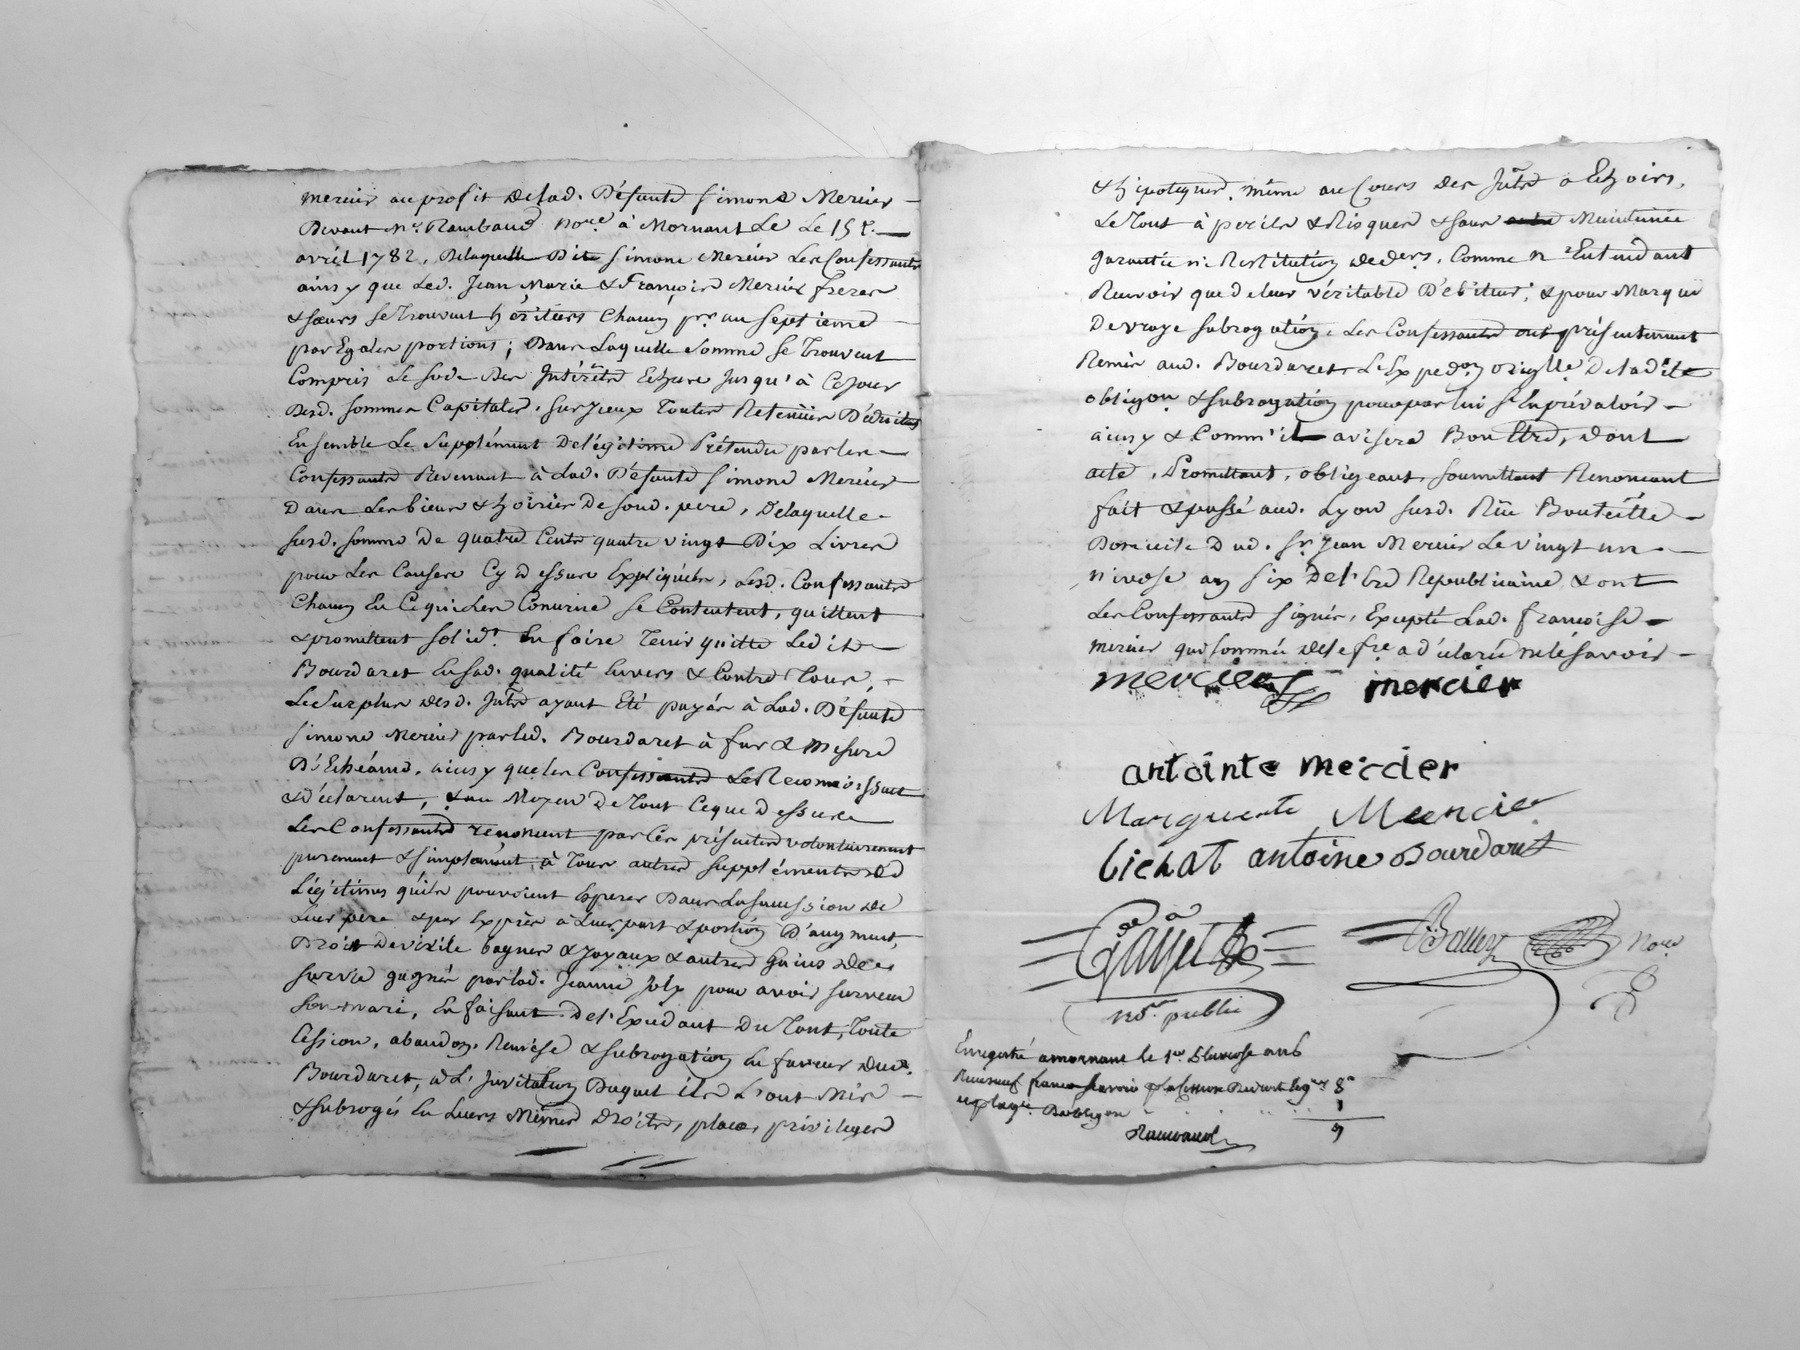 mercier au profit de lad. Défunte Simone Mercier
Devant Me. Rambaud Nore. à Mornant Le Le 15e.
avril 1782, De laquelle Dite Simone Mercier Les Confessants
ainsy que Led. Jean Marie & François Mercier freres
& sœurs se Trouvent héritiers Chacun pr. un Septieme
par Egales portions; Dans Laquelle Somme se trouvent
Compris Le Solde Des Intérêts Echus Jusqu'à Ce Jour
Desd. Sommes Capitales. Sur Jceux Toutes Retenües Déduites
Ensemble Le Supplément De légitime Prétendu par les
Confessants Revenant à Lad. Défunte Simone Mercier
Dans Les biens & hoiries De Sond. pere, De laquelle
susd. Somme De quatre Cents quatre vingt Dix Livres
pour Les Causes Cy dessus Expliquées, Lesd. Confessants
Chacun En Ce qui les Concerne se Contentent, quittent
& promettent solidt. En faire Tenir quitte Ledit
Bourdaret En sad. qualité Envers & Contre Tous,
Le Surplus Desd. Jnts ayant Eté payés à Lad. Défunte
Simone Mercier par led. Bourdaret à fur & Mesure
D'Echéance, ainsy que les Confessants Le Reconnoissent
& déclarent, & au Moyen De Tout Ce que Dessus
Les Confessants renoncent par Ces présentes volontairement
purement & simplement, à Tous autres Suppléments De
Légitimes qu'ils pourroient Esperer Dans La Succession De
Leur pere & par Exprès à Leur part & portion D'augment,
Droit De virile bagues & Joyaux & autres Gains De
Survie gagnés par lad. Jeanne Joly pour avoir Survecu
Son mari, En faisant De l'Excedant Du Tout, Toute
Cession, abandon, Remise & subrogation En faveur Dud.
Bourdaret, à L'Jnvitation Duquel ils L'ont Mis
& subrogés En Leurs Mêmes Droits, place, privileges
& hipoteques, même au Cours Des Jnts à Echoirs,
Le Tout à perils & Risques & sans Maintenüe
Garantie ni Restitution De ders, Comme n'Entendant
Recevoir que De leur véritable Débiteur, & pour Marque
De vraye subrogation, Les Confessants ont présentement
Remis aud. Bourdaret L'Expedon. origlle. De lad ite
obligon. & subrogation pour par lui S'En prévaloir
ainsy & Comm'il avisera Bon Etre, Dont
acte, Promettant, obligeant, Soumettant Renonceant
fait & passé aud. Lyon susd. Rüe Bouteille
Domicile Dud. Sr. Jean Mercier Le vingt un
nivose an Six De l'Ere Republicaine & ont
Les Confessants signés, Excepté Lad. françoise
mercier qui sommée De le fre. a déclaré ne le Savoir
mercier mercier
antointe mercier
Marguerite Mercier
bichat antoine Bourdaret
Gayet
nore. public
Nore
Enregistré a mornant le 1er. Pluviose an 6
8
1
9
Rambaud